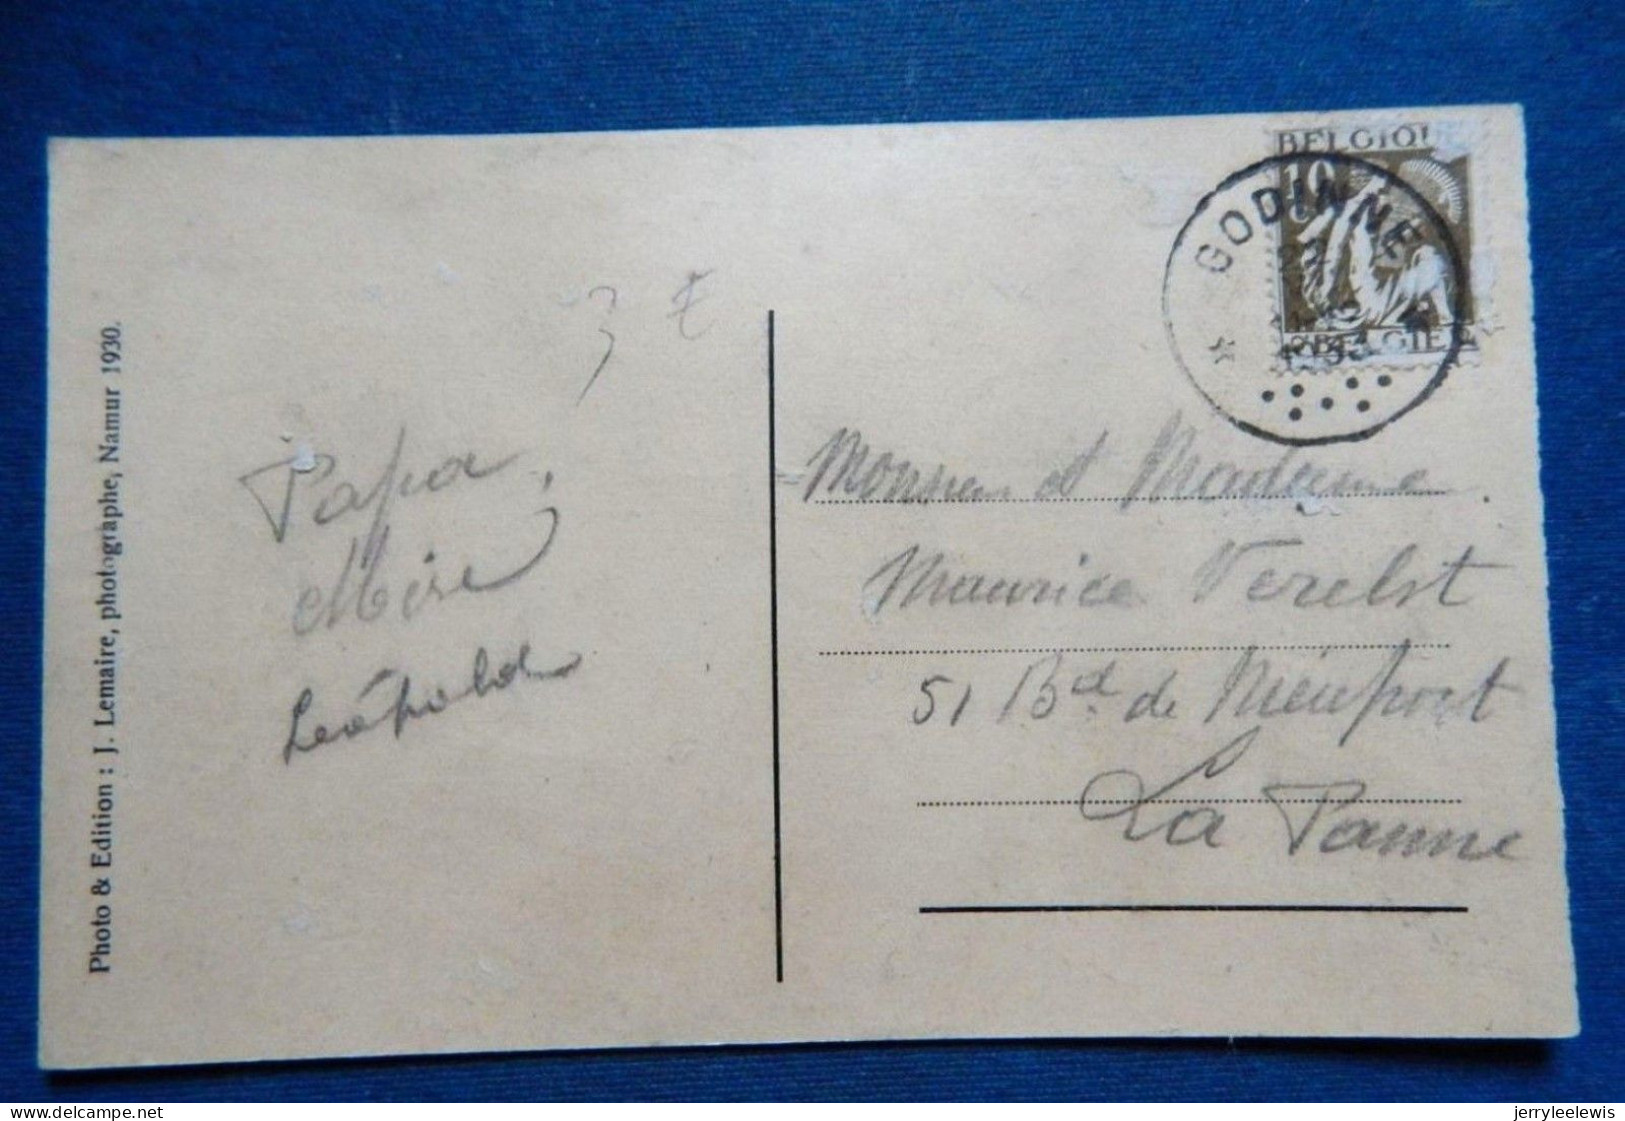 Photo & Edition : J. Lemaire, photographe, Namur 1930.
3 €
Papa,
Mère
Léopold
BELGIQU
10
GODINNE
1933
BELGIE
Monsieur et Madame
Maurice Verelst
51 Bd de Nieuport
La Panne
delcampe.net
jerryleelewis